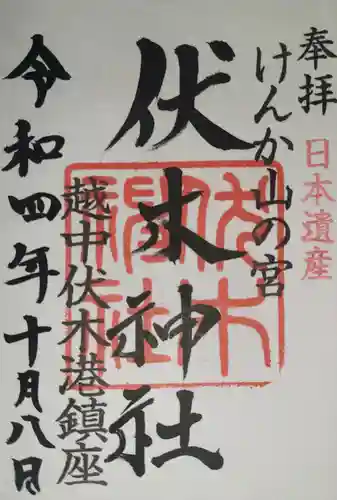 奉拝
日本遺産
けんか山の宮
伏木神社
伏木神社
越中伏木港鎮座
令和四年十月八日